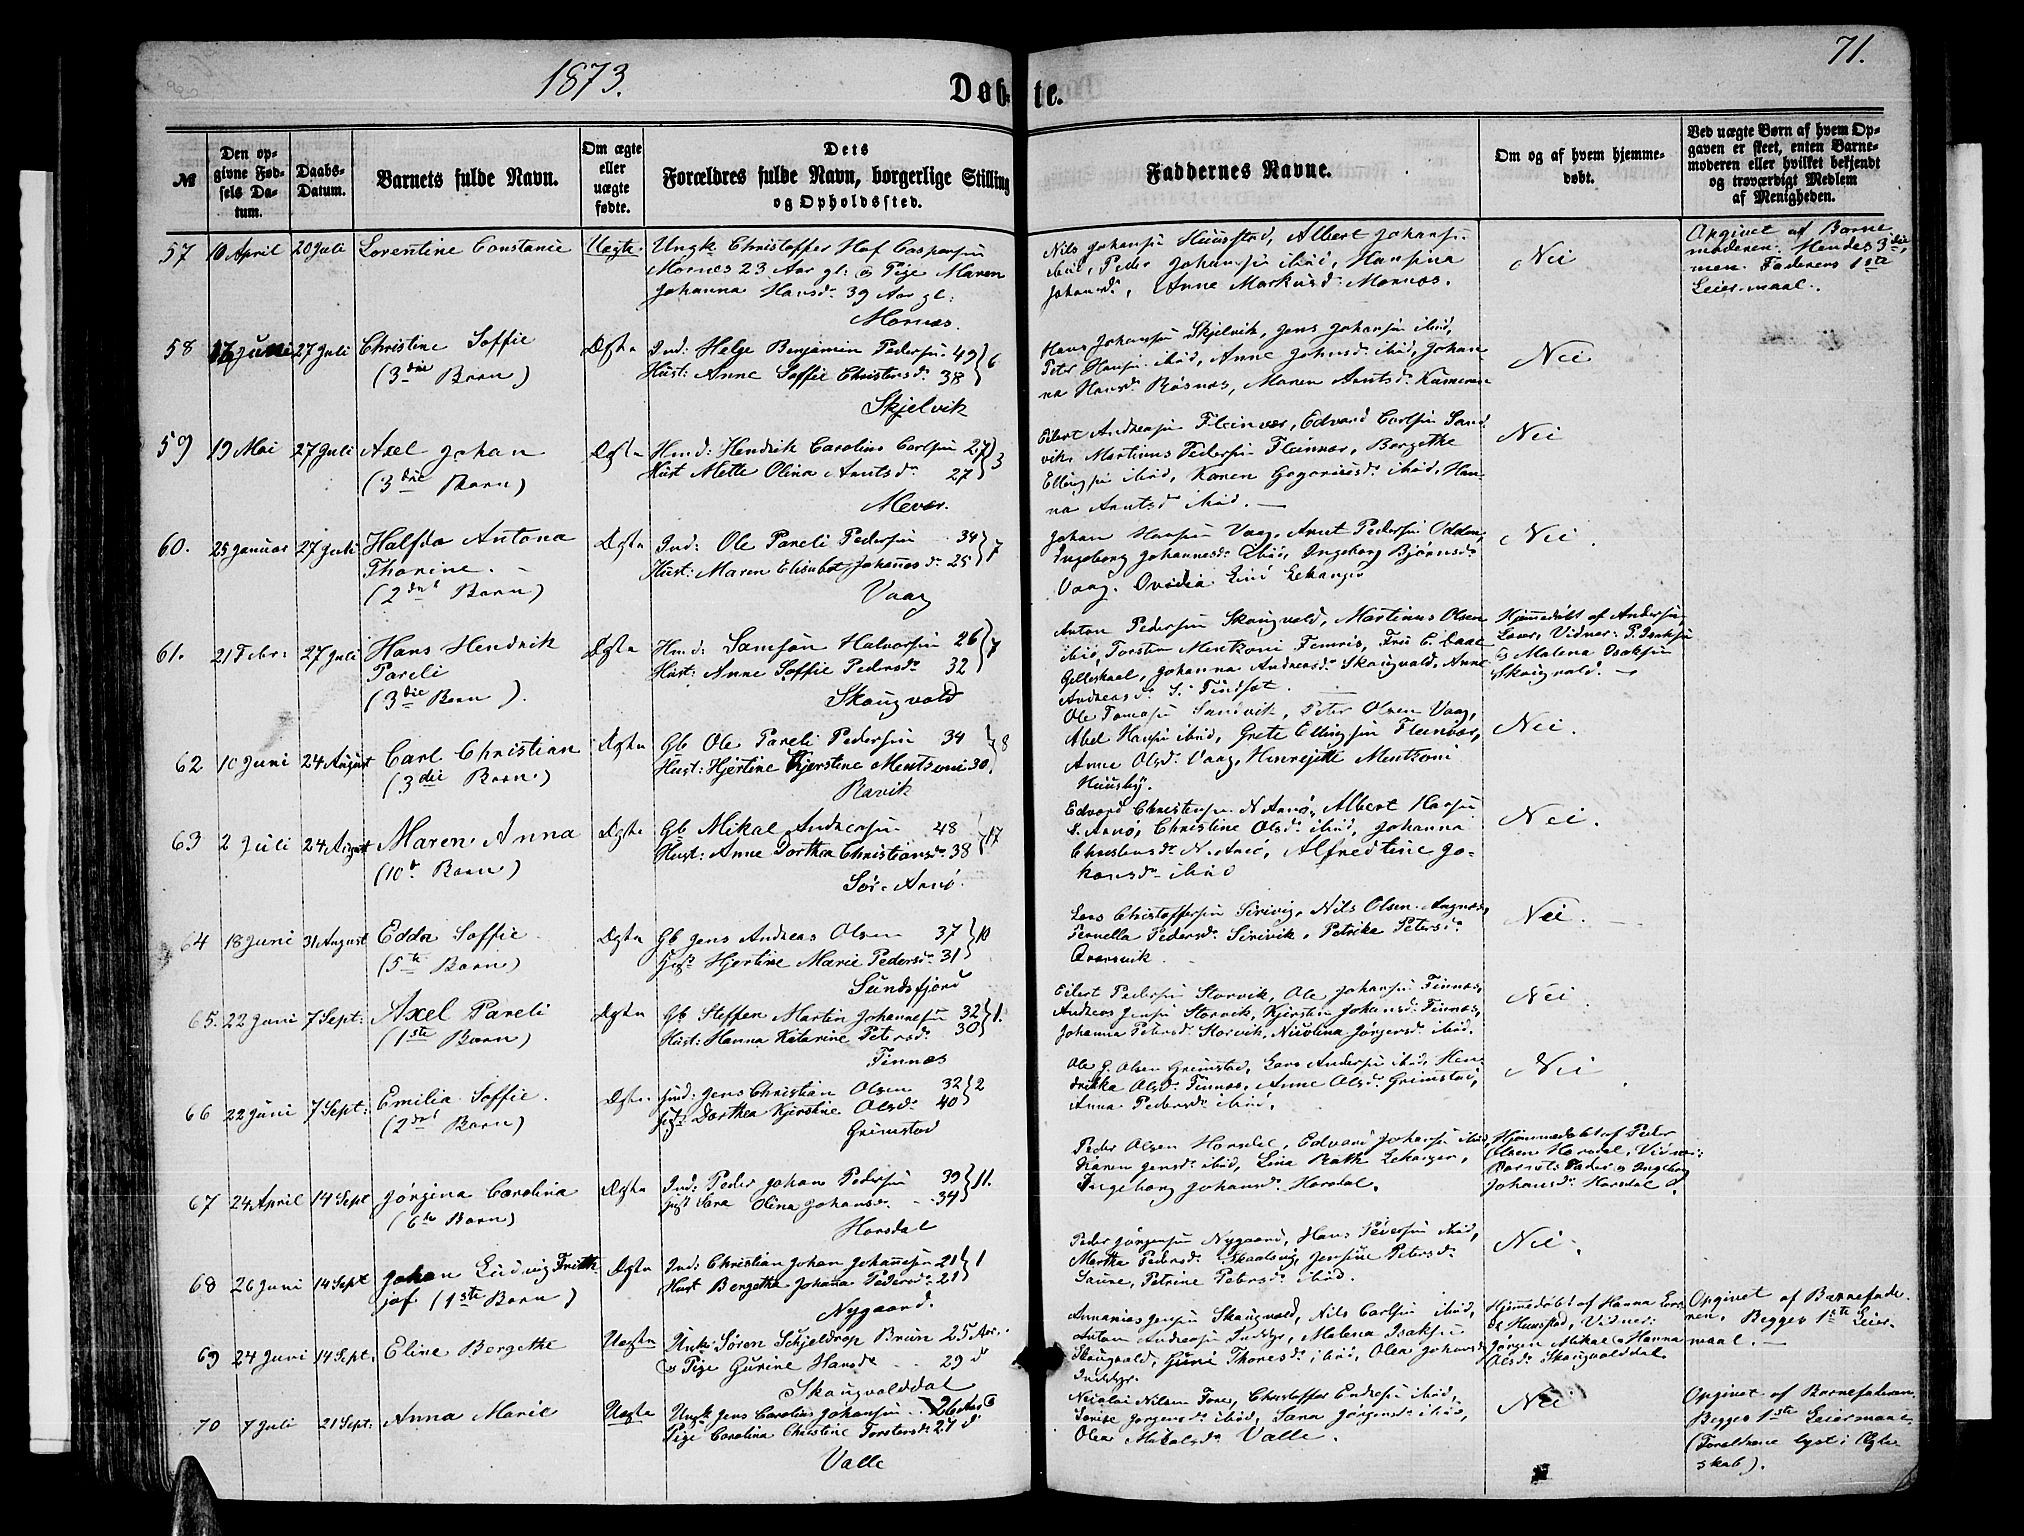 1873.
71.
Døbte.
№
Den opgivne Fødsels Datum.
Daabs-Datum.
Barnets fulde Navn.
Om ægte eller uægte fødte.
Dets Forældres fulde Navn, borgerlige Stilling og Opholdssted.
Faddernes Navne.
Om og af hvem hjemmedøbt.
Ved uægte Børn af hvem Opgaven er skeet, enten Barnemoderen eller hvilket bekjendt og troværdigt Medlem af Menigheden.
57 10 April 20 Juli Lorentine Constanie Uægte. Ungk Christoffer Hof Caspersen
Mornæs 23 Aar gl: & Pige Maren
Johanna Hansd. 39 Aar gl:
Mornæs.
Nils Johansen Huusstad, Albert Johansen
ibid, Peder Johansen ibid, Hansina
Johansd., Anne Markusd. Mornæs.
Nei
Opgivet af Barne
moderen. Hendes 3die,
men Faderens 1ste
Leiermaal.
58 Juni 27 Juli Christine Soffie
(3die Barn)
Ægte Ind: Helge Benjamin Pedersen 49 } 6
Hust: Anne Soffie Christensd. 38
Skjelvik
Hans Johansen Skjelvik, Jens Johansen ibid,
Peter Hansen ibid, Anne Johnsd. ibid, Johan
na Hansd. Røsnæs, Maren Arntsd.
Nei
59 19 Mai 27 Juli Axel Johan
(3die Barn)
Ægte Hmd: Hendrik Carolius Carlsen 27 } 3
Hust Mette Olina Arntsd. 27
Mevær.
Eilert Andreasen Fleinvær, Edvard Carlsen Sand
vik, Martinus Pedersen Fleinvær, Bergethe
Ellingsen ibid, Karen Gregoriusd. ibid, Han-
na Arntsd ibid.
Nei
60. 25 Januar 27 Juli Halfda Antona
Thorine.
(2det Barn)
Ægte Ind: Ole Pareli Pedersen 34 } 7
Hust: Maren Elisabet Johannesd. 25
Vaag
Johan Hansen Vaag, Arnt Pedersen Odden,
Ingeborg Johannesd. ibid, Ingeborg Bjørnsd.
Vaag.
Nei.
61. 21 Febr: 27 Juli Hans Hendrik
Pareli
(3die Barn).
Ægte Hmd: Samson Halvorsen 26 } 7
Hust: Anne Soffie Pedersd. 32
Skaugvold
Anton Pedersen Skaugvold, Martinus Olsen
ibid, Torsten Mentzoni Femris, Fru C. Daae
Gilleskaal, Johanna Andreasd. Skaugvald, Anne
Andreasd. S. Findset.
Hjemmedøbt af Andersen,
Vidner: P. Isaksen
& Malena Isaksen
Skaugvold.
62 10 Juni 24 August Carl Christian
(3die Barn)
Ægte Gb Ole Pareli Pedersen 34 } 8
Hust: Hjertine Kjerstine Mentsoni 30
Ravik
Ole Tomasen Sandvik, Peter Olsen Vaag,
Abel Hansen ibid, Grete Ellingsen Fleinvær,
Anne Olsd. Vaag, Henrejette Mentzoni
Huusby.
Nei.
63 2 Juli 24 August Maren Anna
(10d Barn)
Ægte Gb Mikal Andersen 48 } 17
Hust: Anne Dorthea Christiansd. 38
Sør-Arnø.
Edvard Christensen N. Arnø, Albert Hansen
S. Arnø, Christine Olsd. ibid, Johanna
Christensd. N. Arnø, Alfredtine Jo-
hansd. ibid
Nei.
64 18 Juni 31 August Edda Soffie.
(5te Barn)
Ægte Gb Jens Andreas Olsen 37 } 10
Hust Hjertine Marie Pedersd. 31
Sundsfjord
Lars Christoffersen Sirivig, Nils Olsen Angnæs,
Pernella Pedersd. Sirivik, Petrike Petersd.
Nei.
65. 22 Juni 7 Sept: Axel Pareli
(1ste Barn)
Ægte Gb Steffen Martin Johannesen 32 } 1.
Hust: Hanna Katarine Petersd. 30
Finnæs
Eilert Pedersen Storvik, Ole Johansen Finnæs,
Andreas Jensen Storvik, Kjersten Johansd. Finnæs,
Johanna Petersd. Storvik, Nicolina Jørgensd. ibid.
Nei.
66 22 Juni 7 Sept: Emilia Soffie.
(2det Barn)
Ægte. Ind: Jens Christian Olsen 32 } 2
Hust Dorthea Kjerstine Olsd. 40
Grimstad
Ole G. Olsen Grimstad, Lars Andersen ibid, Hen
drikka Olsd. Finnæs, Anne Olsd. Grimstad,
Anna Pedersd. ibid.
Nei
67 24 April 14 Sept Jørgina Carolina
(6te Barn)
Ægte Ind: Peder Johan Pedersen 39 } 11.
Hust Sara Olina Johansd. 34
Horsdal
Peder Olsen Horsdal, Edvard Johansen ibid,
Karen Jensd. ibid, Lina Rath,
Ingeborg Johansd. Horsdal.
Hjemmedøbt af Peder
Olsen Horsdal, Vidner:
Barnets Fader & Ingeborg
Johansd. Horsdal
68 26 Juni 14 Sept Johan Ludvig Frith
jof (1ste Barn)
Ægte Ind: Christian Johan Johannesen 21 } 1
Hust Bergetha Johana Pedersd. 21
Nygaard.
Peder Jørgensen Nygaard, Hans Sivertsen ibid,
Martha Pedersd. Skaalsvig, Jensine Petersd.
Saure, Petrine Petersd. ibid.
Nei.
69 24 Juni 14 Sept. Eline Bergethe Uægte Unk Søren Schjeldrop Brun 25 Ar.
& Pige Gurine Hansd. 29 d
Skaugvolddal
Annanias Jensen Skaugvald, Nils Carlsen ibid,
Antan Andersen Inddyr, Malena Isaksen
Skaugvald, Guni Thoresd. ibid, Olea Johansd
Inddyr.
Hjemmedøbt af Hanna
Huusstad, Vidner:
Jørgen Mikal & Hanna
Olsd. Skaugvalddal
Opgivet af Barnefade-
ren. Begges 1ste Leier-
maal.
70 7 Juli 21 Sept: Anna Marie Uægte Ungk Jens Carolius Johansen 26 Aar
Pige Carolina Christine Torstensd. 27 d.
Valle
Nicolai Nilsen Fore, Christoffer Endresen ibid,
Jørgensd. ibid, Sara Jørgensd. ibid,
Olea Mikalsd. Valle.
Nei
Opgivet af Barnefaderen.
Begges 1ste Leiermaal
(Forældrene lyst i Ægte
skab).